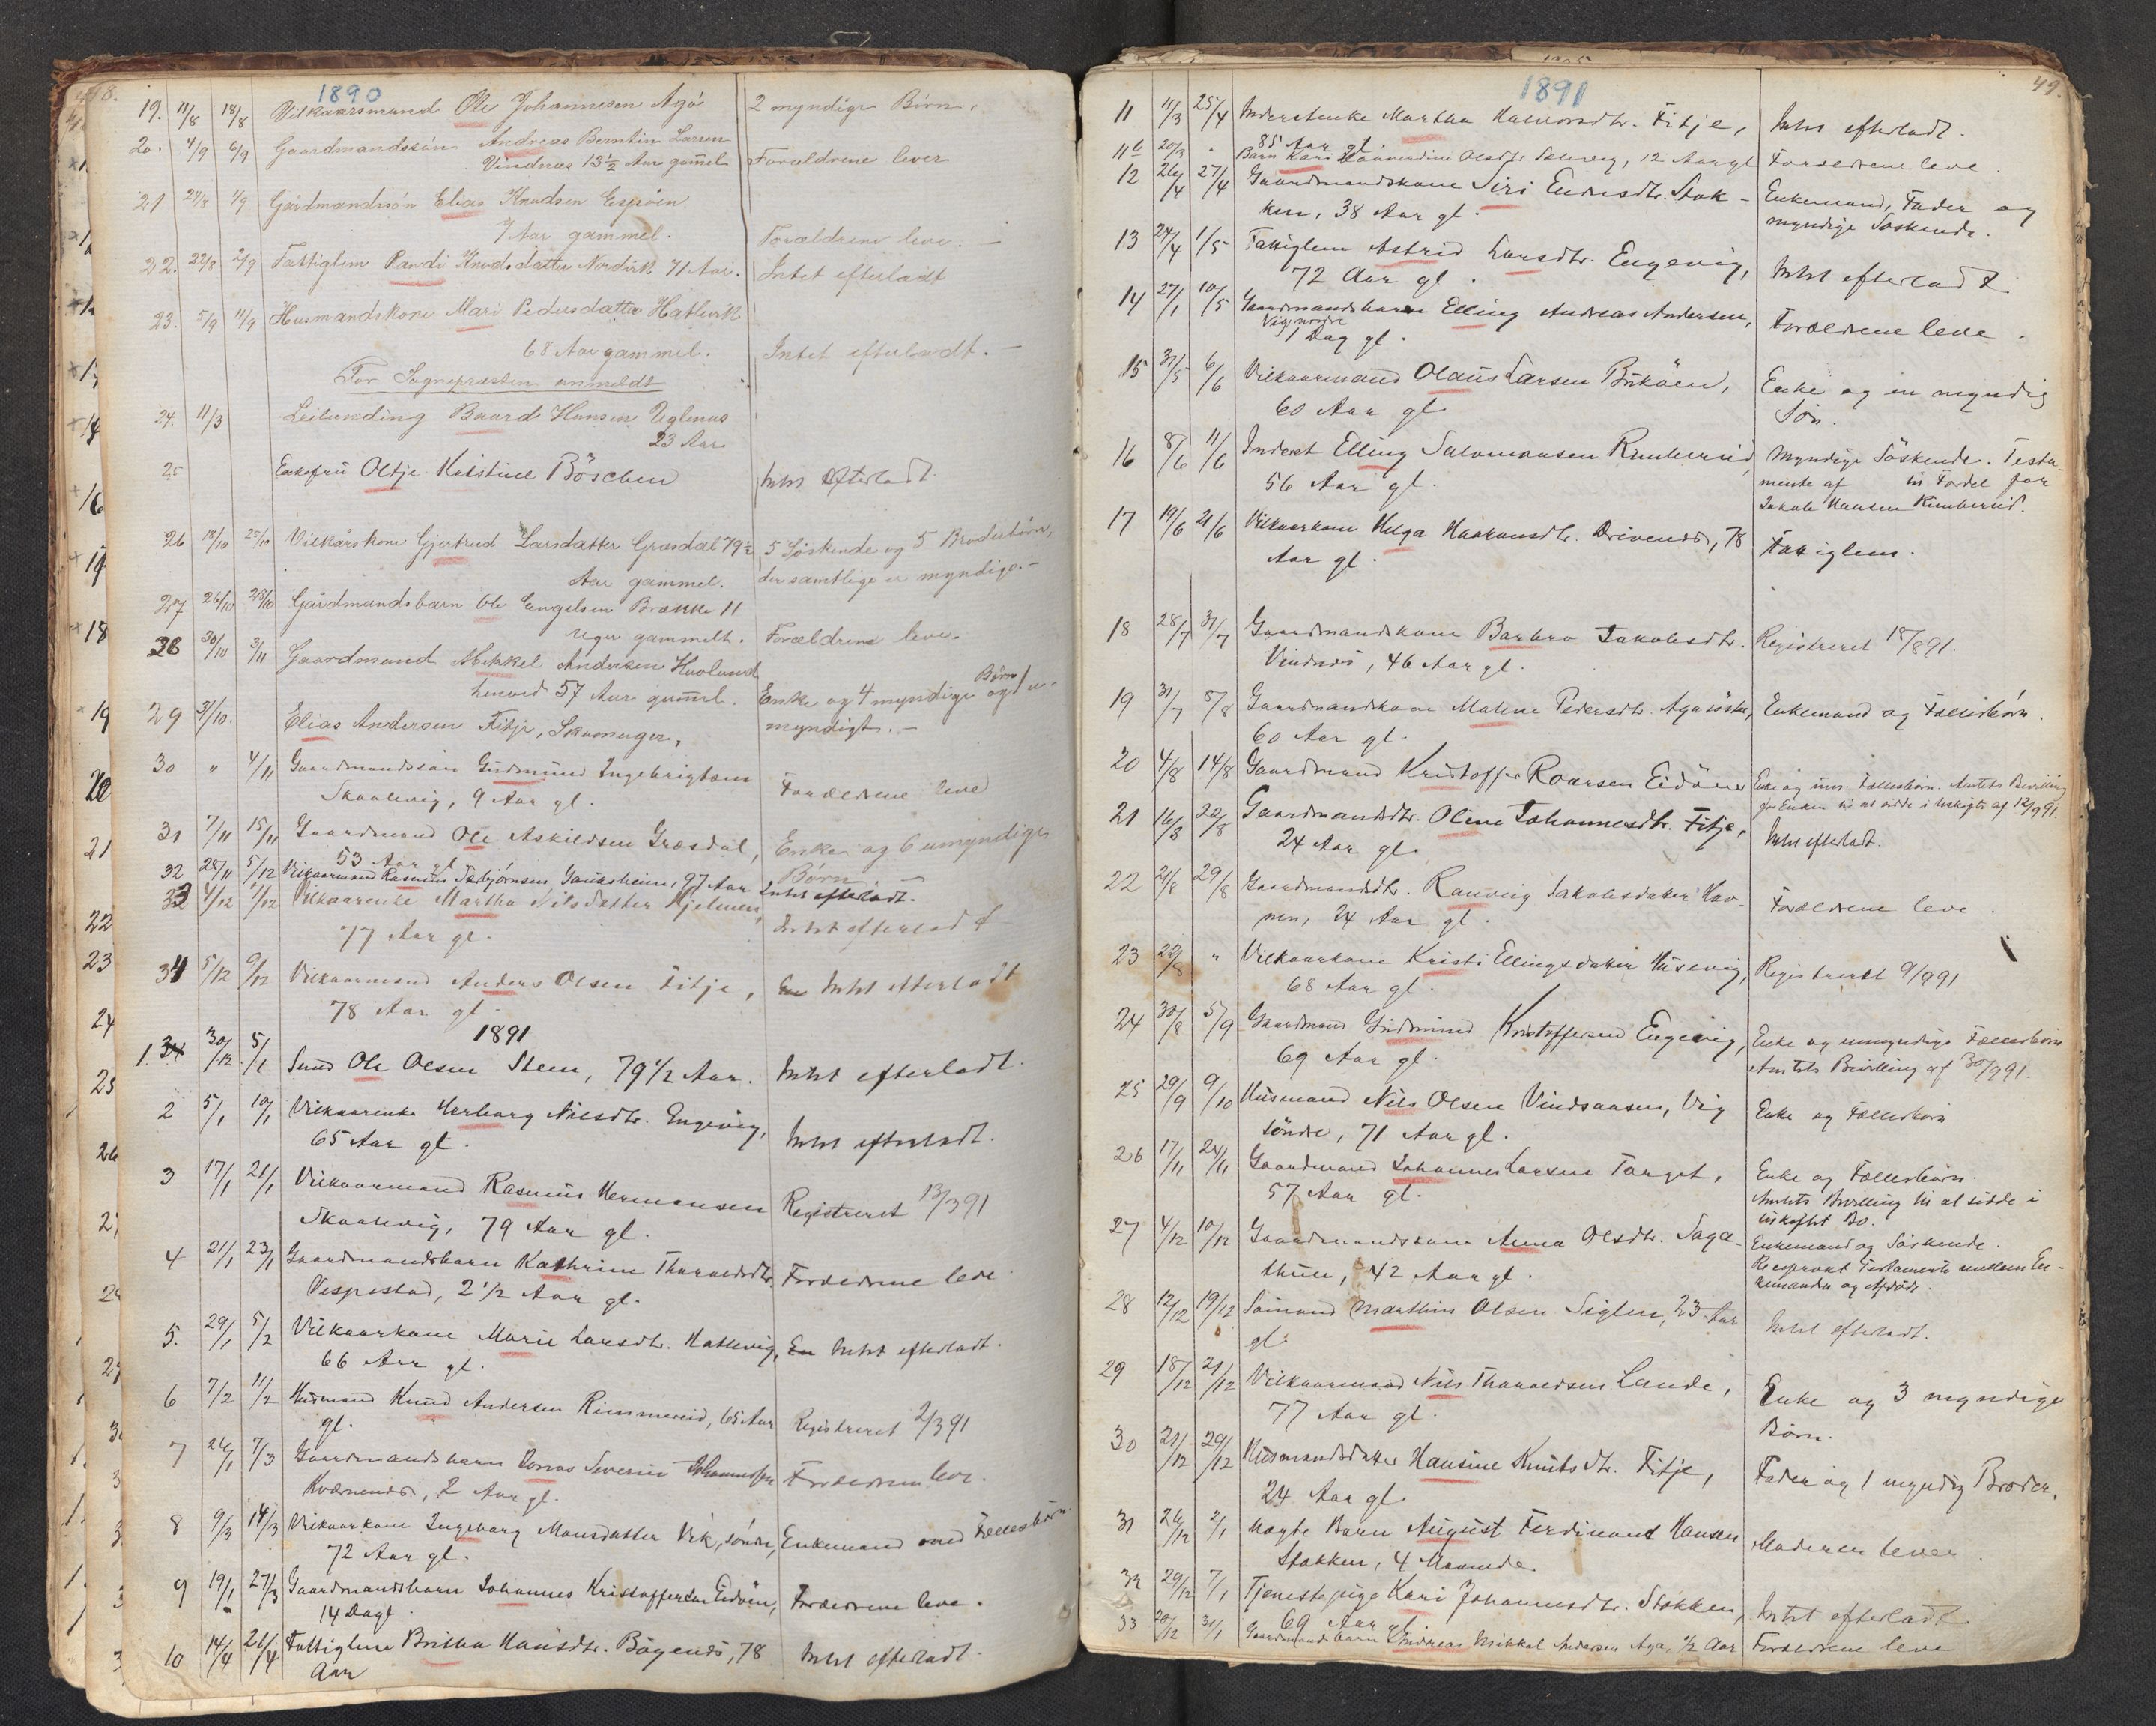 48.
1890
19. 11/8 18/8 Vilkaarsmand Ole Johannesen Agö 2 myndige Börn.
20. 4/9 6/9 Gaardmandssön Andreas Berntin Larsen
Vindenæs 13 1/2 Aar gammel Forældrene lever
21 24/8 1/9 Gårdmandssön Elias Knudsen Espöien
7 Aar gammel. Forældrene leve. -
22. 22/8 2/9 Fattiglem Randi Knudsdatter Nordvik 71 Aar. Intet efterladt
23. 5/9 11/9 Husmandskone Mari Pedersdatter Hatlevik
68 Aar gammel. Intet efterladt. -
For Sognepræsten anmeldt
24. 11/3 Leilending Baard Hansen Uglenæs
23 Aar.
25 Enkefru Oltje Kristine Böschen Intet Efterladt.
26 18/10 25/10 Vilkårskone Gjertrud Larsdatter Græsdal 79 1/2 5 Söskende og 5 Broderbörn,
Aar gammel. der samtlige er myndige. -
27 26/10 28/10 Gårdmandsbarn Ole Engelsen Brække 11
Uger gammelt. Forældrene leve.
28 30/10 3/11 Gaardmand Mikkel Andersen
57 Aar gammel. Enke og 4 myndige Börn og 1 u-
29 31/10. Elias Andersen Fitje, Skomager, myndigt. -
30 " 4/11 Gaardmandssön Gudmund Ingebrigtsen
Skaalevig, 9 Aar gl. Forældrene leve
31 7/11 15/11 Gaardmand Ole Askildsen Græsdal, Enke og 6 umyndige
53 Aar gl. Börn. -
32 28/11 5/12 Vilkaarmand Rasmus Torbjörnsen, Gauksheim, 97 Aar Intet efterladt.
33 4/12 7/12 Vilkaarenke Martha Nilsdatter Hjelmen,
77 Aar gl. Intet efterladt
34 5/12 9/12 Vilkaarmand Anders Olsen Fitje, En Intet efterladt
78 Aar gl.
1891
1. 34 30/12 5/1 Ole Olsen Steen, 79 1/2 Aar. Intet efterladt.
2 5/1 10/1 Vilkaarenke Herborg Nilsdtr. Engevig,
65 Aar gl. Intet efterladt.
3 17/1 21/1 Vilkaarmand Rasmus Hermansen Registreret 13/3 91
Skaalevig, 79 Aar gl.
4 21/1 23/1 Gaardmandsbarn Kathrine Tharaldsdtr. Forældrene leve
Vespestad, 2 1/2 Aar gl.
5. 29/1 5/2 Vilkaarkone Marie Larsdtr. Hatlevig, En Intet efterladt.
66 Aar gl.
6 7/2 11/2 Husmand Knud Andersen Rimmereid, 65 Aar Registreret 2/3 91
gl.
7 26/1 7/3 Gaardmandsbarn Severin Johannessen Forældrene leve.
Kværnenes, 2 Aar gl.
8 9/3 14/3 Vilkaarkone Ingeborg Monsdatter Vik, söndre, Enkemand med Fællesbörn
72 Aar gl.
9 19/1 27/3 Gaardmandsbarn Johannes Kristoffersen Eidöen, Forældrene leve.
14 Dage.
10 14/4 21/4 Fattiglem Britha Hansdtr. Bögenes, 78 Intet efterladt.
Aar
49.
1891
11 11/3 25/4 Inderstenke Martha Halvorsdtr. Fitje, Intet efterladt.
85 Aar gl.
11b 20/3 " Barn Kari Olsdtr Selevig, 12 Aar gl Forældrene leve.
12 26/4 27/4 Gaardmandskone Siri Endresdtr. Stok- Enkemand, Fader og
ken, 38 Aar gl. myndige Söskende.
13 24/4 1/5 Fattiglem Astrid Larsdtr. Engevig,
72 Aar gl. Intet efterladt
14 27/1 10/5 Gaardmandsbarn Elling Andreas Andersen,
Vig nordre
1 Dag gl. Forældrene leve.
15 31/5 6/6 Vilkaarmand Olaus Larsen Buköen, Enke og en myndig
60 Aar gl Sön.
16 8/6 11/6 Inderst Elling Salomonsen Rimbereid, Myndige Söskende. Testa-
56 Aar gl. mente af til Fordel for
Jakob Hansen Rimbereid.
17 19/6 21/6 Vilkaarkone Helga Haakonsdtr. Drivenes, 78
Aar gl. Fattiglem.
18 28/7 31/7 Gaardmandskone Barbro Jakobsdtr. Registreret 18/8 91.
Vindnæs, 46 Aar gl.
19 31/7 8/8 Gaardmandskone Malene Pedersdtr. Agasöster, Enkemand og Fællesbörn.
60 Aar gl.
20 4/8 14/8 Gaardmand Kristoffer Roarsen Eidöen Enke og um. Fællesbörn. Amtets Bevilling
for Enken til at sidde i uskifte af 12/9 91.
21 16/8 22/8 Gaardmandsdtr. Oline Johannesdtr. Fitje,
24 Aar gl. Intet efterladt.
22 21/8 29/8 Gaardmandsdtr. Ranveig Jakobsdatter Hav-
nen, 24 Aar gl. Forældrene leve.
23 22/8 " Vilkaarkone Kristi Ellingsdatter Husevig, Registreret 9/9 91
68 Aar gl.
24 30/8 5/9 Gaardmand Gudmund Kristoffersen Engevig, Enke og umyndige Fællesbörn
69 Aar gl. Amtets Bevilling af 30/9 91.
25 29/9 9/10 Husmand Nils Olsen Vindsaasen, Vig
söndre, 71 Aar gl. Enke og Fællesbörn
26 17/11 24/11 Gaardmand Johannes Larsen Torget, Enke og Fællesbörn.
57 Aar gl. Amtets Bevilling til at sidde i
uskiftet Bo.
27 4/12 10/12 Gaardmandskone Anna Olsdtr. Saga- Enkemand og Söskende.
thun, 42 Aar gl. Reciprokt Testamente mellem En-
kemanden og Afdöde.
28 12/12 19/12 Sömand Marthin Olsen Siglen, 23 Aar
gl. Intet efterladt.
29 18/12 21/12 Vilkaarmand Nils Tharaldsen Lande, Enke og 3 myndige
77 Aar gl. Börn.
30 21/12 29/12 Husmandsdatter Hansine Knutsdtr. Fitje, Fader og 1 myndig Broder.
24 Aar gl.
31 26/12 2/1 Uægte Barn August Ferdinand Hansen Moderen lever.
Stokken, 4 Maaneder.
32 29/12 7/1 Tjenestepige Kari Johannesdtr. Stokken, Intet efterladt.
69 Aar gl.
33 20/12 31/1 Gaardmandsbarn Andreas Mikkal Andersen Aga, 1/2 Aar Forældrene leve